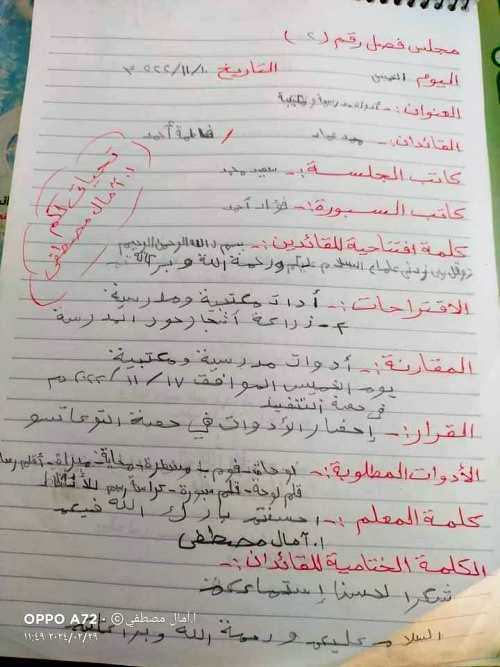 مجلس فصل رقم (٢)
اليوم الخميس التاريخ ٢٠٢٢/١١/١٠ م
العنوان:- أدوات مدرسية ومكتبية
القائدان:- / فاطمة أحمد
كاتب الجلسة:- سعيد محمد
كاتب السبورة:- فؤاد أحمد
تحيات لكم
أ. آمال مصطفى
كلمة افتتاحية للقائدين:- بسم الله الرحمن الرحيم
السلام عليكم ورحمة الله وبركاته
الاقتراحات:- أدوات مكتبية ومدرسية
٢- زراعة أشجار حور المدرسة
المقارنة:- أدوات مدرسية ومكتبية
يوم الخميس الموافق ١٧ / ١١ / ٢٠٢٢ م
في حصة التنفيذ
القرار:- إحضار الأدوات في حصة التوكاتسو
الأدوات المطلوبة:- لوحة - فوم - مسطرة - براية - أقلام رصاص
قلم لوحة - قلم سبورة - كراسة رسم
كلمة المعلم:- احسنتم بارك الله فيكم
ا. آمال مصطفى
الكلمة الختامية للقائدان:-
شكرا لحسن إستماعكم
السلام عليكم ورحمة الله وبركاته
OPPO A72 © ا.آمال مصطفي
٢٠٢٤/٠٢/٢٩ ١١:٤٩